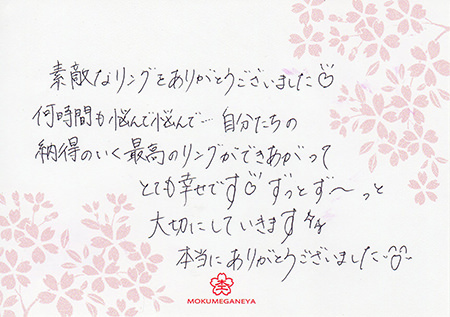 素敵なリングをありがとうございました♡
何時間も悩んで悩んで…自分たちの
納得のいく最高のリングができあがって
とても幸せです♡ ずっとず〜っと
大切にしていきます
本当にありがとうございました
MOKUMEGANEYA